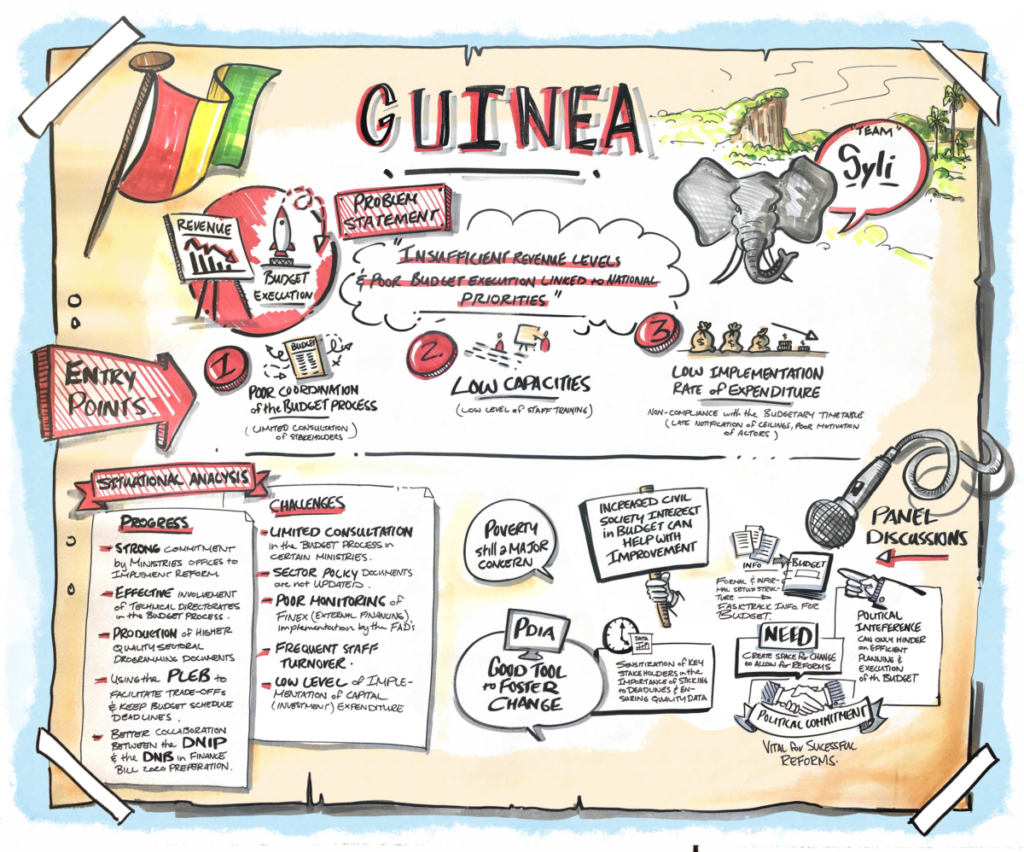 GUINEA
"TEAM"
Syli
PROBLEM
STATEMENT
REVENUE
BUDGET
EXECUTION
"INSUFFICIENT REVENUE LEVELS
& POOR BUDGET EXECUTION LINKED to NATIONAL
PRIORITIES"
ENTRY
POINTS
1
BUDGET
POOR COORDINATION
of the BUDGET PROCESS
(LIMITED CONSULTATION
of STAKEHOLDERS)
2.
LOW CAPACITIES
(LOW LEVEL of STAFF TRAINING)
3
LOW IMPLEMENTATION
RATE of EXPENDITURE
NON-COMPLIANCE with the BUDGETARY TIMETABLE
(LATE NOTIFICATION of CEILINGS, POOR MOTIVATION
of ACTORS)
SITUATIONAL ANALYSIS
PROGRESS
STRONG COMMITMENT
by MINISTRIES OFFICES to
IMPLEMENT REFORM
EFFECTIVE INVOLVEMENT
of TECHNICAL DIRECTORATES
in the BUDGET PROCESS.
PRODUCTION of HIGHER
QUALITY SECTORAL
PROGRAMMING DOCUMENTS
USING the PLEB to
FACILITATE TRADE-OFFS
& KEEP BUDGET SCHEDULE
DEADLINES.
BETTER COLLABORATION
BETWEEN the DNIP
& the DNB in FINANCE
BILL 2020 PREPERATION.
CHALLENGES
LIMITED CONSULTATION
in the BUDGET PROCESS in
CERTAIN MINISTRIES.
SECTOR POLICY DOCUMENTS
are not UPDATED.
POOR MONITORING of
FINEX (EXTERNAL FINANCING)
implementation by the FADs
FREQUENT STAFF
TURNOVER.
LOW LEVEL of IMPLE-
MENTATION OF CAPITAL
(INVESTMENT) EXPENDITURE
POVERTY
still a MAJOR
CONCERN
INCREASED CIVIL
SOCIETY INTEREST
in BUDGET CAN
HELP WITH
IMPROVEMENT
PDIA
GOOD TOOL
to FOSTER
CHANGE
DATA
SENSITIZATION of KEY
STAKEHOLDERS in the
IMPORTANCE OF STICKING
to DEADLINES & EN-
SURING QUALITY DATA
PANEL
DISCUSSIONS
INFO
BUDGET
FORMAL & INFOR-
MAL SETUP STRUC-
TURE
FASTTRACK INFO FOR
BUDGET.
NEED
CREATE SPACE for CHANGE
to ALLOW for REFORMS
POLITICAL
INTEFERENCE
CAN ONLY HINDER
an EFFICIENT
PLANNING &
EXECUTION
of th BUDGET
POLITICAL COMMITMENT
VITAL for SUCESSFUL
REFORMS.